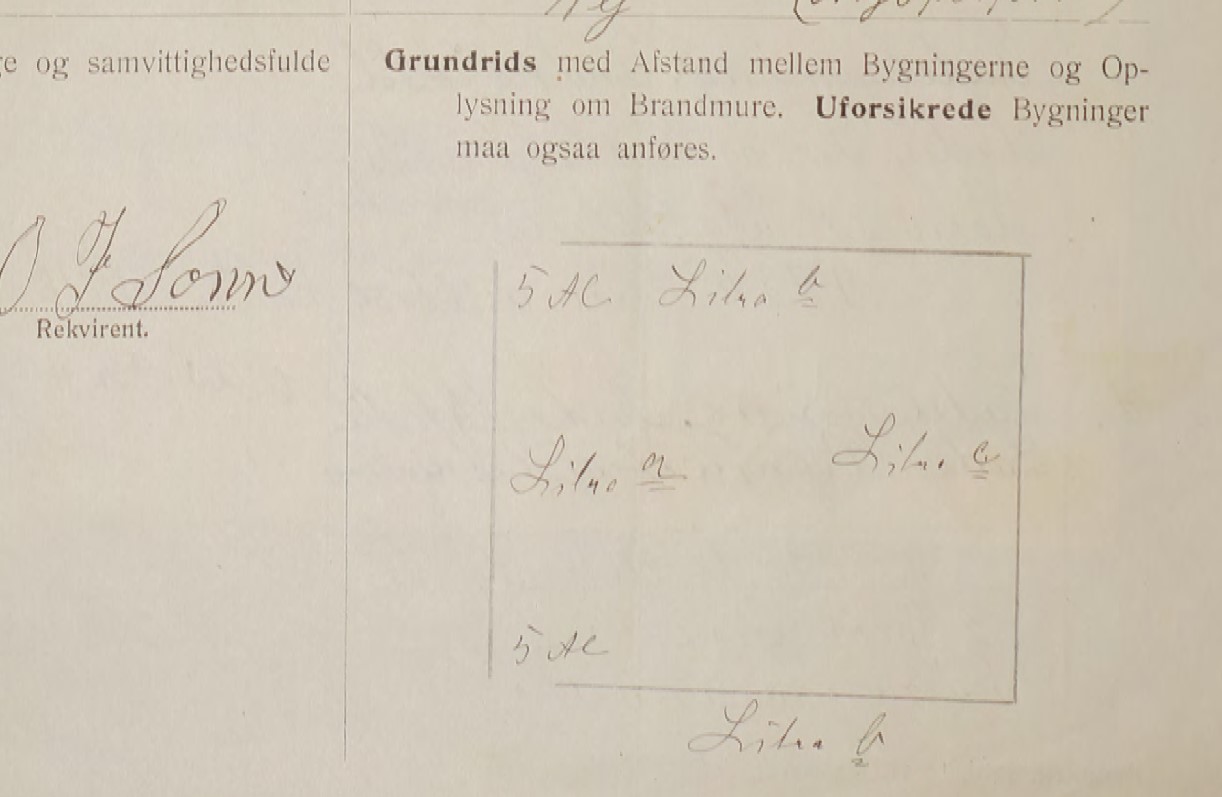 og samvittighedsfulde
J Sonne
Rekvirent.
Grundrids med Afstand mellem Bygningerne og Op-
lysning om Brandmure. Uforsikrede Bygninger
maa ogsaa anføres.
5 Al Litra b
Litra a Litra c
5 Al
Litra b